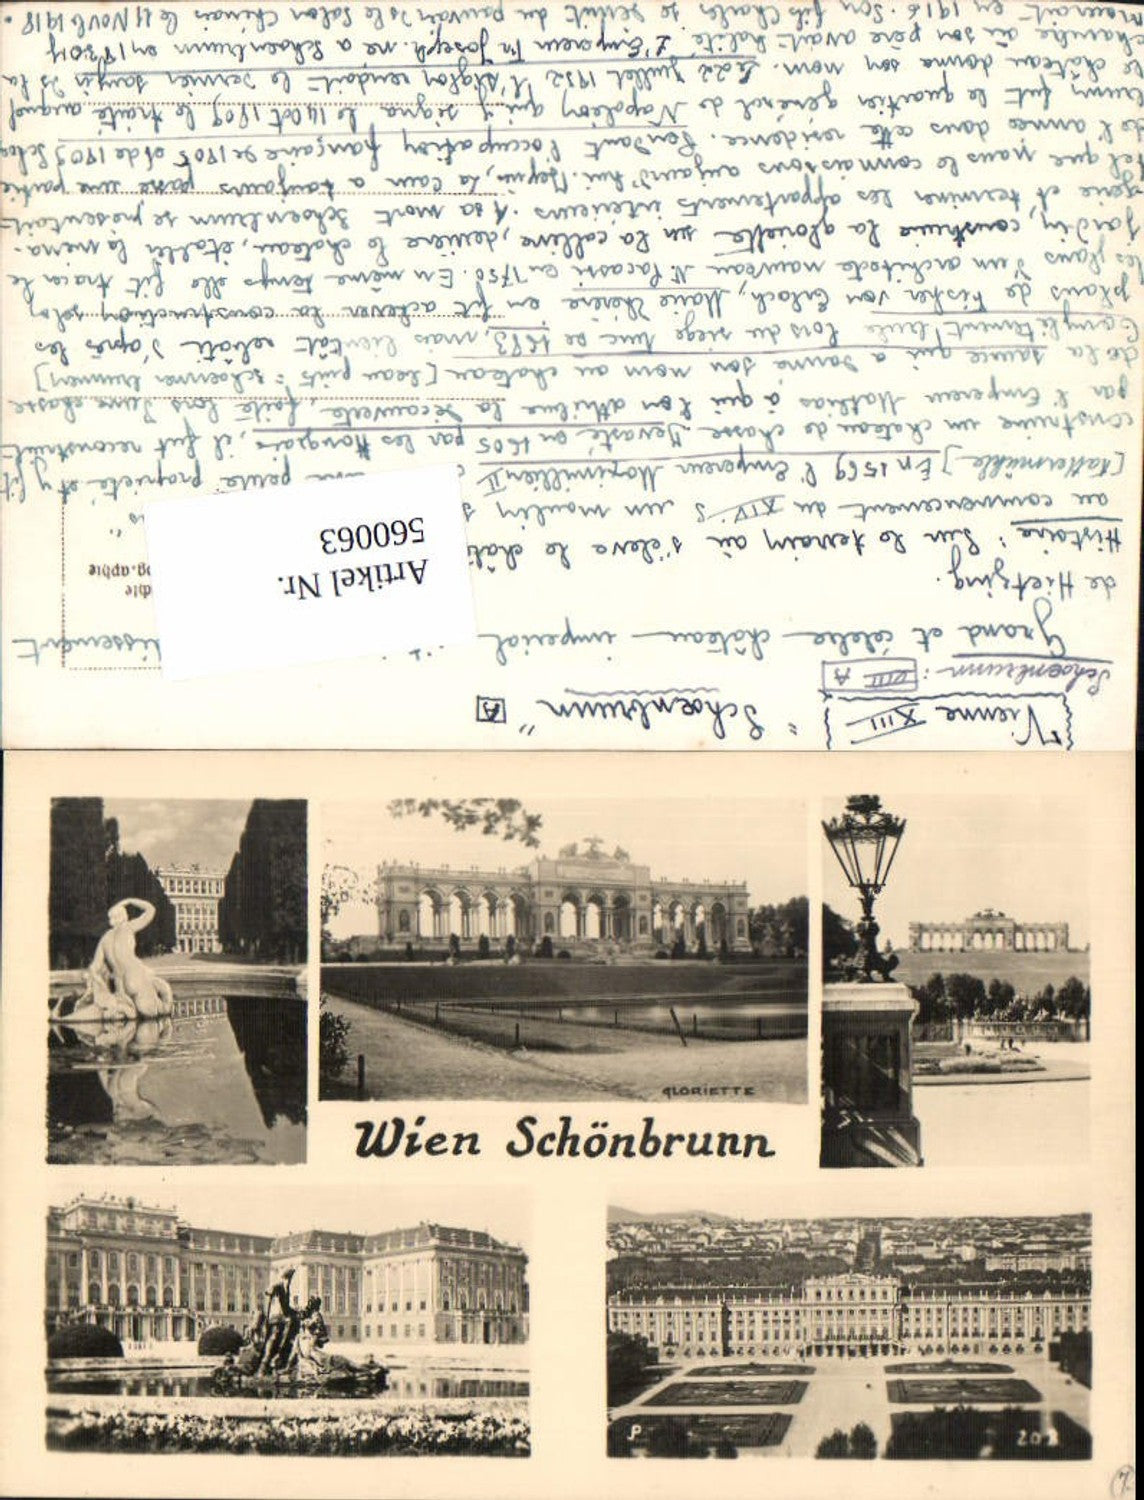 "Vienne XIII "Schoenbrunn" A
Schoenbrunn : XIII A
Grand et célèbre château impérial
de Hietzing.
Histoire : Sur le terrain où s'élève le
au commencement du XIV S un moulin
[Kattermühle] En 1569 l'Empereur Maximilien II petite propriété et y fit
construire un château de chasse. Dévasté en 1605 par les Hongrois, il fut reconstruit
par l'Empereur Mathias à qui l'on attribue la découverte, faite lors d'une chasse
de la source qui a donné son nom au château [beau puits = schoenner brunnen]
Complètement brûlé lors du siège turc de 1683, mais bientôt rebâti d'après les
plans de Fischer von Erlach, Marie Thérèse en fit achever la construction selon
les plans d'un architecte nouveau N. Pacassi en 1750. En même temps elle fit tracer le
jardin, construire la gloriette sur la colline, derrière le château, établir la ména-
gerie et terminer les appartements intérieurs. A sa mort Schoenbrunn se présentait
tel que nous le connaissons aujourd'hui. Depuis, la cour a toujours passé une partie
de l'année dans cette résidence. Pendant l'occupation française de 1805 et de 1809 Schoen
brunn fut le quartier général de Napoléon qui y signa le 14 Oct 1809 le traité auquel
le château donna son nom. Le 22 Juillet 1832 l'Aiglon rendait le dernier soupir ds la
chambre où son père avait habité. L'Empereur Fr Joseph né a Schoenbrunn en 1830 y
mourait en 1916. Son fils Charles se du pouvoir ds le Salon Chinois le 11 Novb 1918.
Artikel Nr.
560063
GLORIETTE
Wien Schönbrunn
P
202
7.